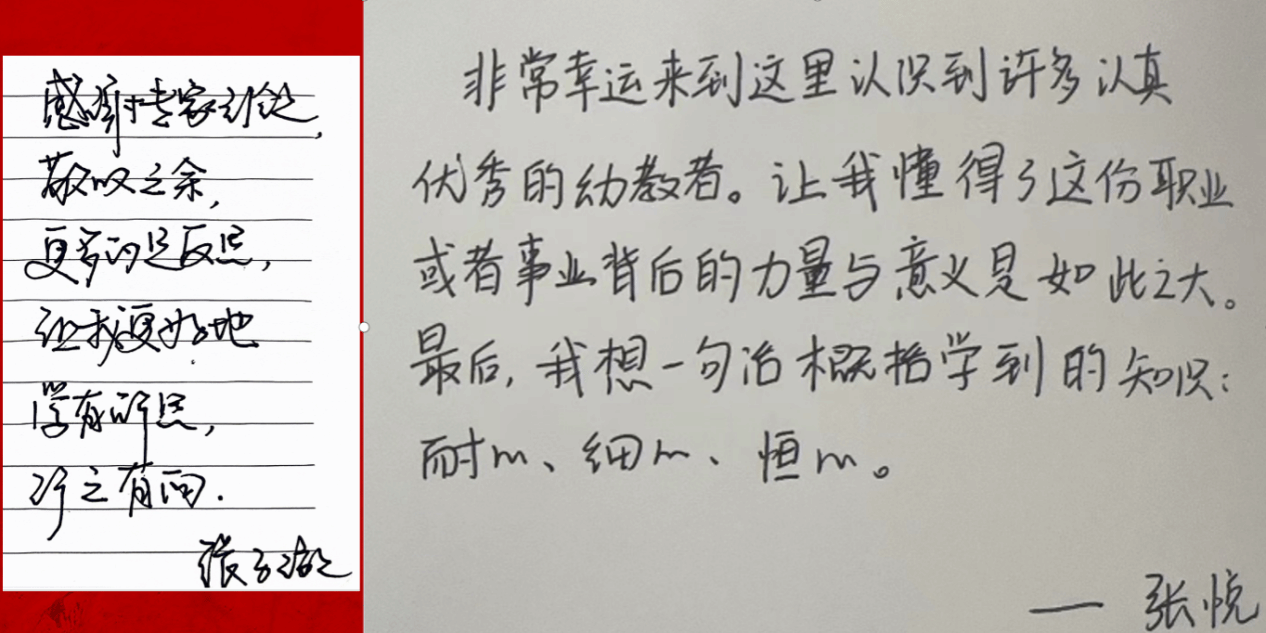 感谢专家引领,
敬叹之余,
更多的是反思,
让我更好地
学有所思,
行之有向.
非常幸运来到这里认识到许多认真
优秀的幼教者。让我懂得了这份职业
或者事业背后的力量与意义是如此之大。
最后,我想一句话概括学到的知识:
耐心、细心、恒心。
— 张悦